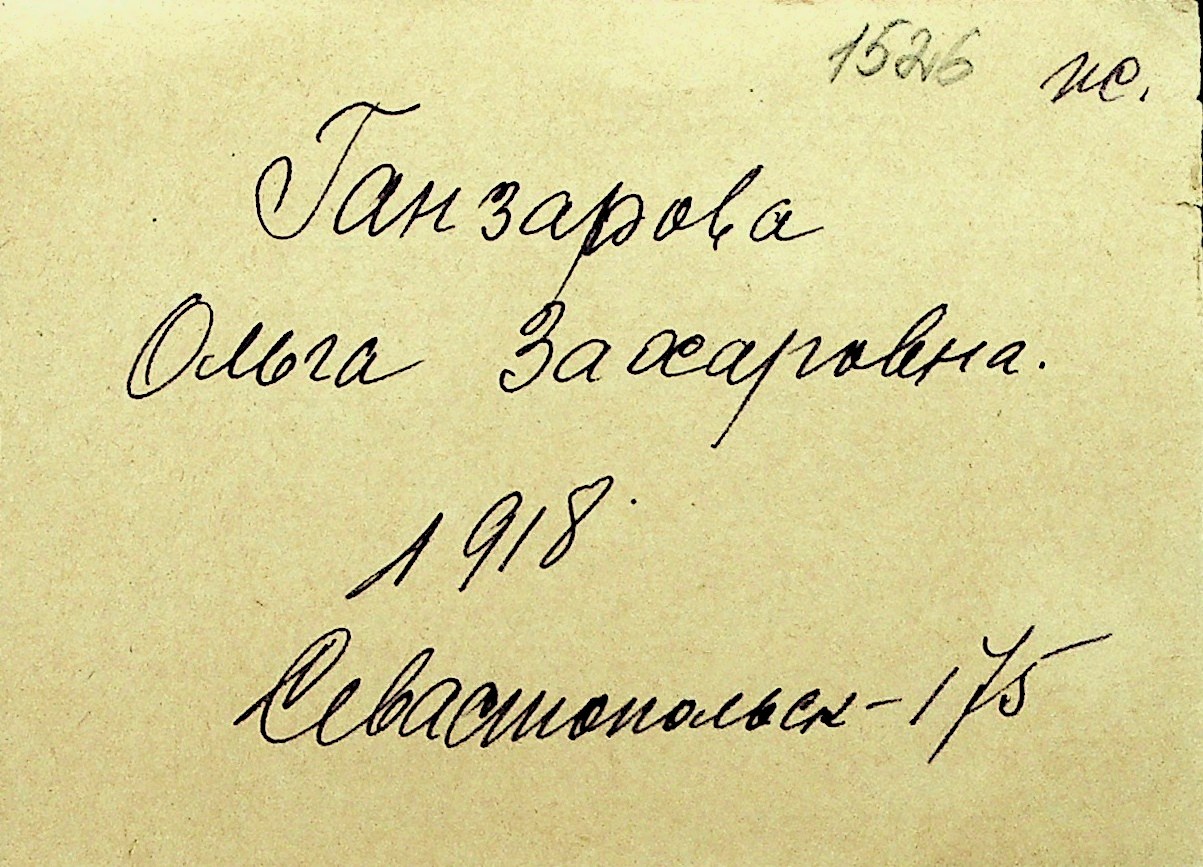 1526 пс.
Ганзарова
Ольга Захаровна.
1918.
Севастопольск-175